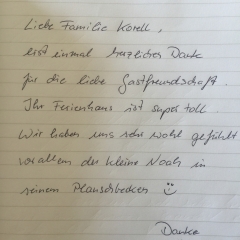 Liebe Familie Korell,
erst einmal herzlichen Danke
für die liebe Gastfreundschaft.
Ihr Ferienhaus ist super toll
Wir haben uns sehr wohl gefühlt
vor allem der kleine Noah in
seinem Planschbecken ☺
Danke